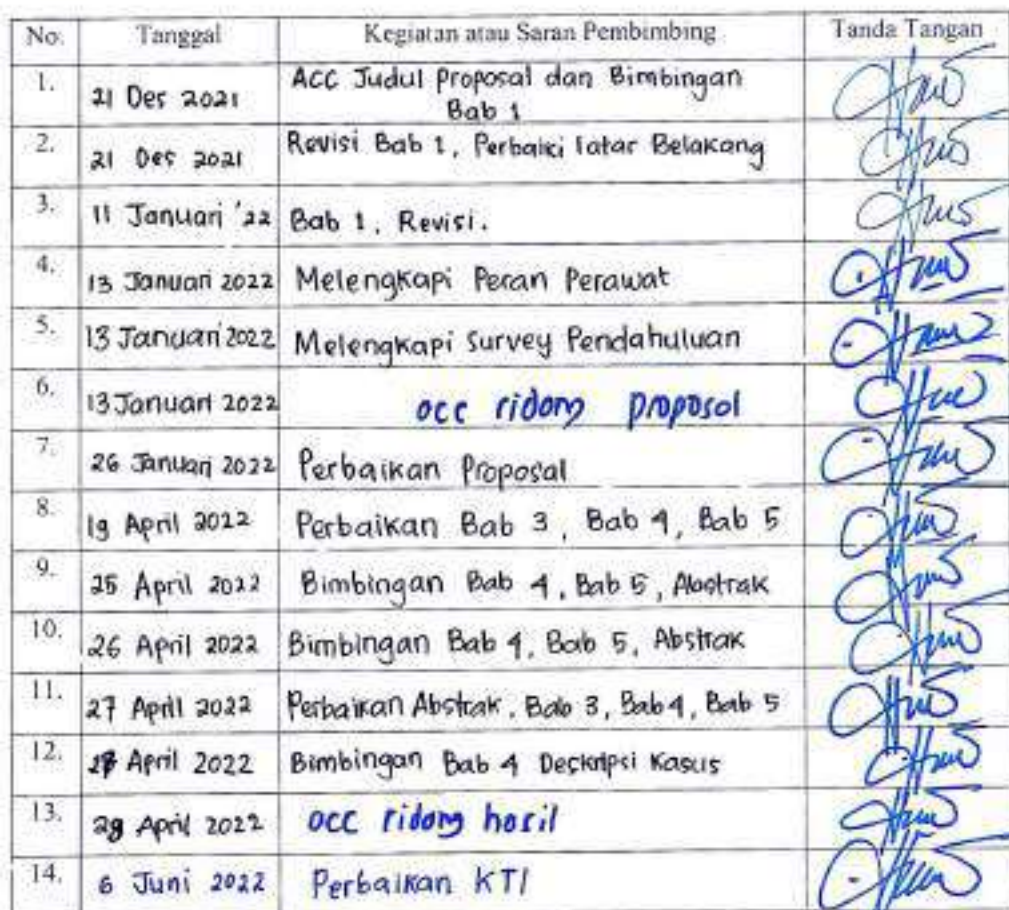 No. Tanggal Kegiatan atau Saran Pembimbing Tanda Tangan
1. 21 Des 2021 ACC Judul Proposal dan Bimbingan
Bab 1
2. 21 Des 2021 Revisi Bab 1, Perbaiki latar Belakang
3. 11 Januari '22 Bab 1, Revisi.
4. 13 Januari 2022 Melengkapi Peran Perawat
5. 13 Januari 2022 Melengkapi Survey Pendahuluan
6. 13 Januari 2022 acc sidang proposal
7. 26 Januari 2022 Perbaikan Proposal
8. 19 April 2022 Perbaikan Bab 3, Bab 4, Bab 5
9. 25 April 2022 Bimbingan Bab 4, Bab 5, Abstrak
10. 26 April 2022 Bimbingan Bab 4, Bab 5, Abstrak
11. 27 April 2022 Perbaikan Abstrak, Bab 3, Bab 4, Bab 5
12. April 2022 Bimbingan Bab 4 Deskripsi Kasus
13. April 2022 acc sidang hasil
14. 6 Juni 2022 Perbaikan KTI